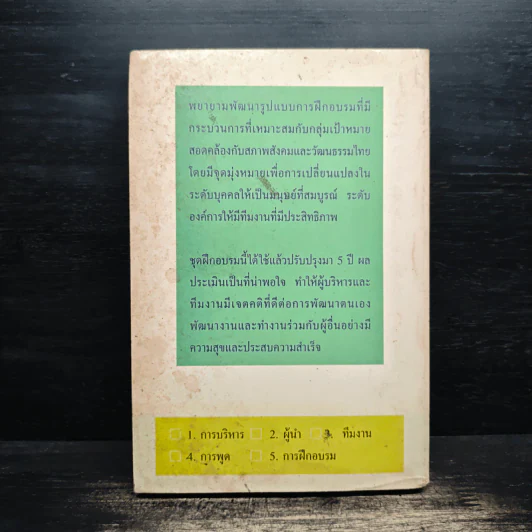 พยายามพัฒนารูปแบบการฝึกอบรมที่มี
กระบวนการที่เหมาะสมกับกลุ่มเป้าหมาย
สอดคล้องกับสภาพสังคมและวัฒนธรรมไทย
โดยมีจุดมุ่งหมายเพื่อการเปลี่ยนแปลงใน
ระดับบุคคลให้เป็นมนุษย์ที่สมบูรณ์ ระดับ
องค์การให้มีทีมงานที่มีประสิทธิภาพ
ชุดฝึกอบรมนี้ได้ใช้แล้วปรับปรุงมา 5 ปี ผล
ประเมินเป็นที่น่าพอใจ ทำให้ผู้บริหารและ
ทีมงานมีเจตคติที่ดีต่อการพัฒนาตนเอง
พัฒนางานและทำงานร่วมกับผู้อื่นอย่างมี
ความสุขและประสบความสำเร็จ
1. การบริหาร 2. ผู้นำ 3. ทีมงาน
4. การพูด 5. การฝึกอบรม